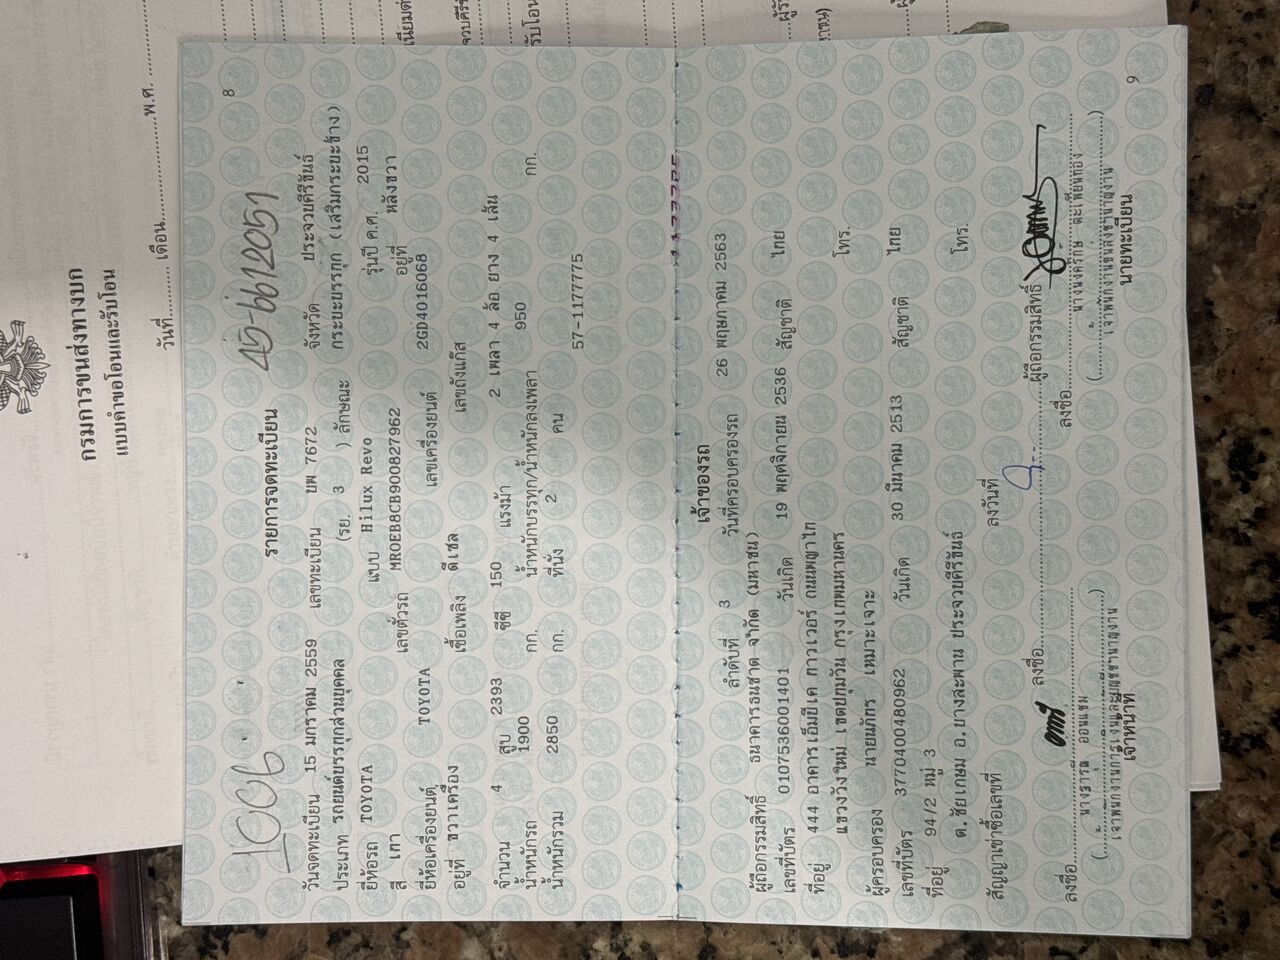 กรมการขนส่งทางบก
แบบคำขอโอนและรับโอน
วันที่............ เดือน........................พ.ศ. ............
8
1006
45-6612051
รายการจดทะเบียน
วันจดทะเบียน 15 มกราคม 2559 เลขทะเบียน บพ 7672 จังหวัด ประจวบคีรีขันธ์
ประเภท รถยนต์บรรทุกส่วนบุคคล (รย. 3 ) ลักษณะ กระบะบรรทุก (เสริมกระบะข้าง)
ยี่ห้อรถ TOYOTA แบบ Hilux Revo รุ่นปี ค.ศ. 2015
สี เทา เลขตัวรถ MR0EB8CB900827962 อยู่ที่ หลังขวา
ยี่ห้อเครื่องยนต์ TOYOTA เลขเครื่องยนต์ 2GD4016068
อยู่ที่ ขวาเครื่อง เชื้อเพลิง ดีเซล เลขถังแก๊ส
จำนวน 4 สูบ 2393 ซีซี 150 แรงม้า 2 เพลา 4 ล้อ ยาง 4 เส้น
น้ำหนักรถ 1900 กก. น้ำหนักบรรทุก/น้ำหนักลงเพลา 950 กก.
น้ำหนักรวม 2850 กก. ที่นั่ง 2 คน
57-1177775
เจ้าของรถ
ลำดับที่ 3 วันที่ครอบครองรถ 26 พฤษภาคม 2563
ผู้ถือกรรมสิทธิ์ ธนาคารธนชาต จำกัด (มหาชน)
เลขที่บัตร 0107536001401 วันเกิด 19 พฤศจิกายน 2536 สัญชาติ ไทย
ที่อยู่ 444 อาคารเอ็มบีเค ทาวเวอร์ ถนนพญาไท
แขวงวังใหม่ เขตปทุมวัน กรุงเทพมหานคร โทร.
ผู้ครอบครอง นายนภัทร เหมาะเจาะ
เลขที่บัตร 3770400480962 วันเกิด 30 มีนาคม 2513 สัญชาติ ไทย
ที่อยู่ 94/2 หมู่ 3
ต.ชัยเกษม อ.บางสะพาน ประจวบคีรีขันธ์ โทร.
สัญญาเช่าซื้อเลขที่ ลงวันที่
ลงชื่อ........................ผู้ถือกรรมสิทธิ์
ลงชื่อ........................ ลงชื่อ........................
เจ้าหน้าที่ นายทะเบียน
9